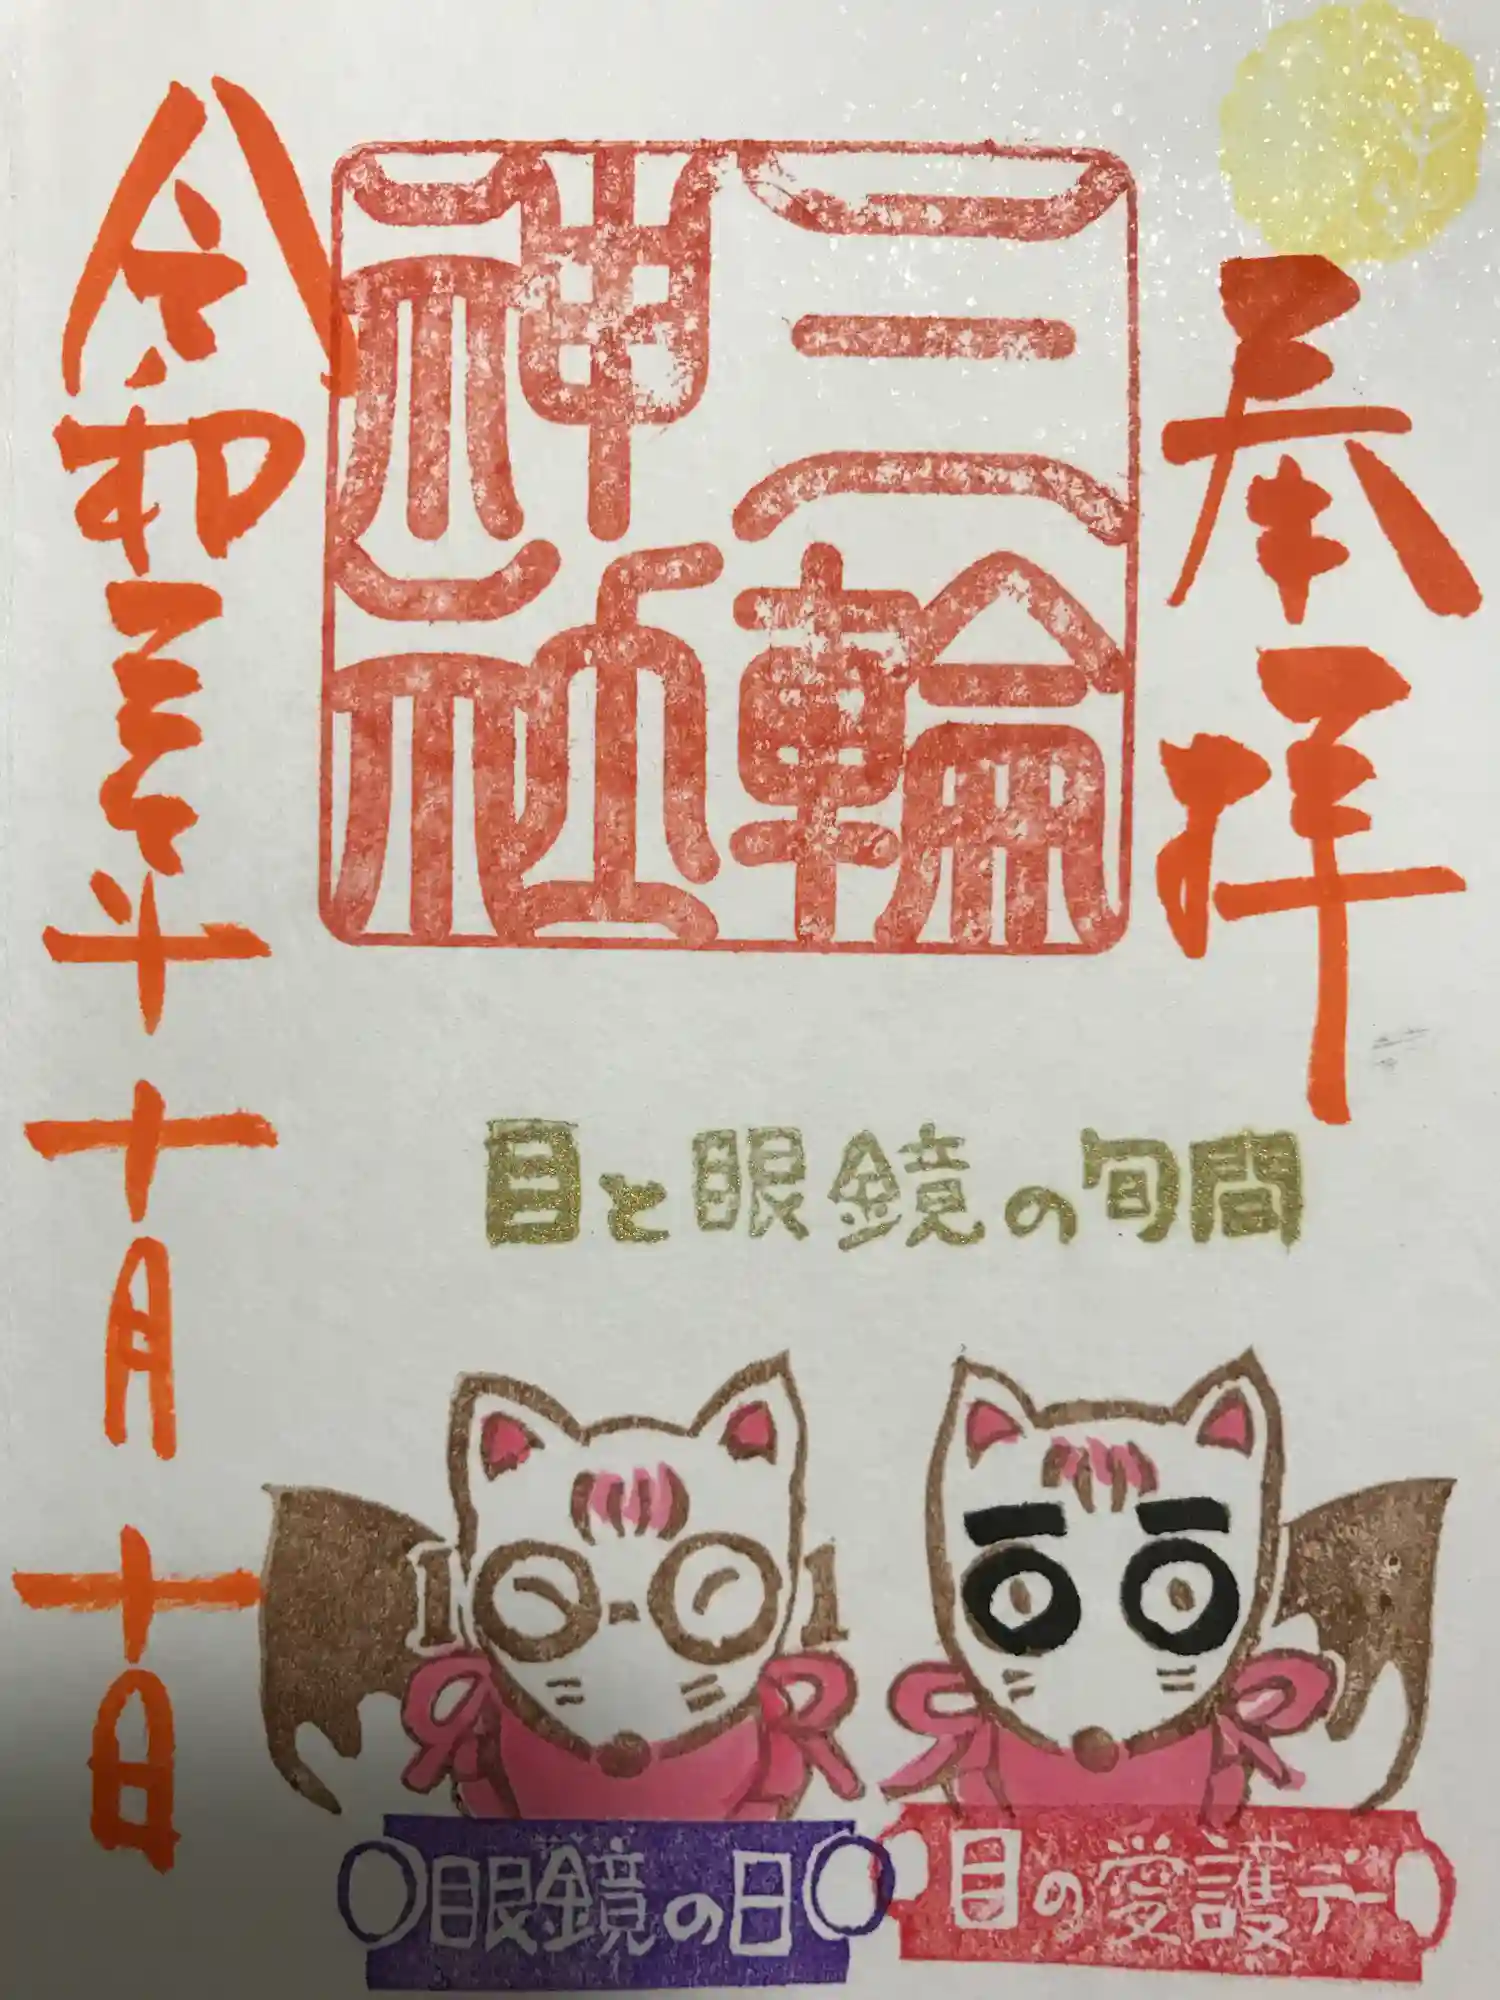 奉拝
三輪
神社
令和三年十月十日
目と眼鏡の旬間
1O-O1
眼鏡の日
目の愛護デー